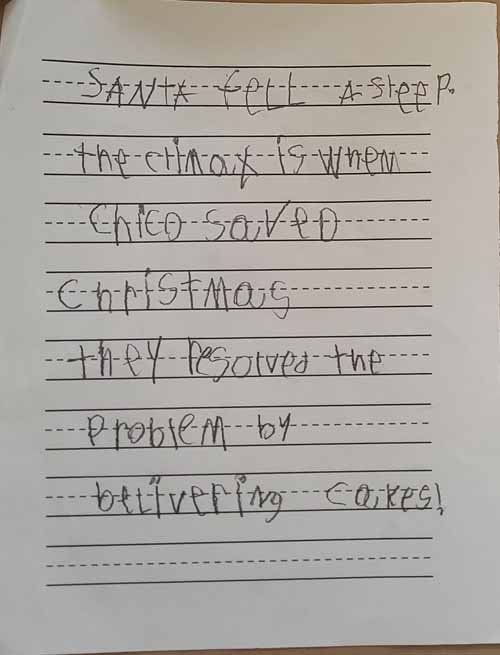 SANTA fell A sleep.
the climax is when
Chico saved
Christmas
they resolved the
Problem by
belivering cakes!